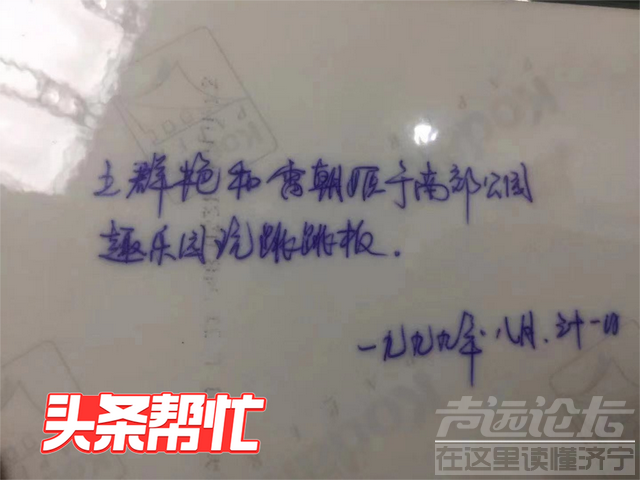 王群艳和雷朝恒于南部公园
趣乐园玩跳跳板.
一九九九年.八月.廿一日
头条帮忙
声远论坛
在这里读懂济宁